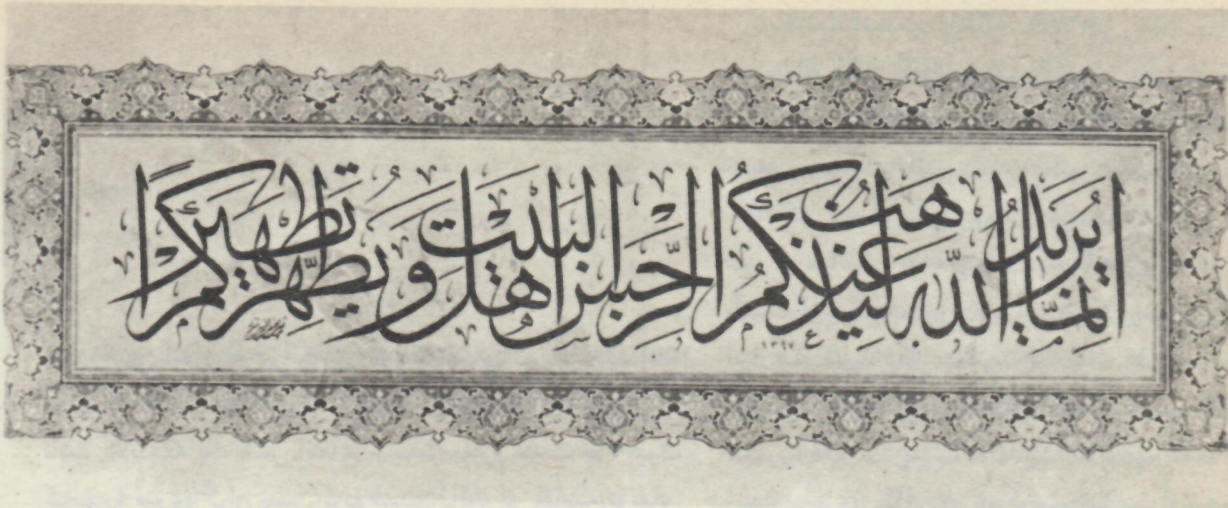 إنما يريد الله ليذهب عنكم الرجس أهل البيت ويطهركم تطهيرا
١٣٩٧